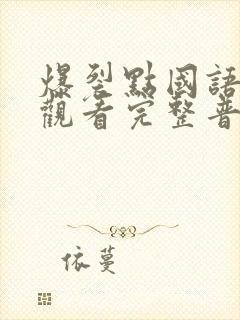 爆裂點國語
觀看完整普
依蔓